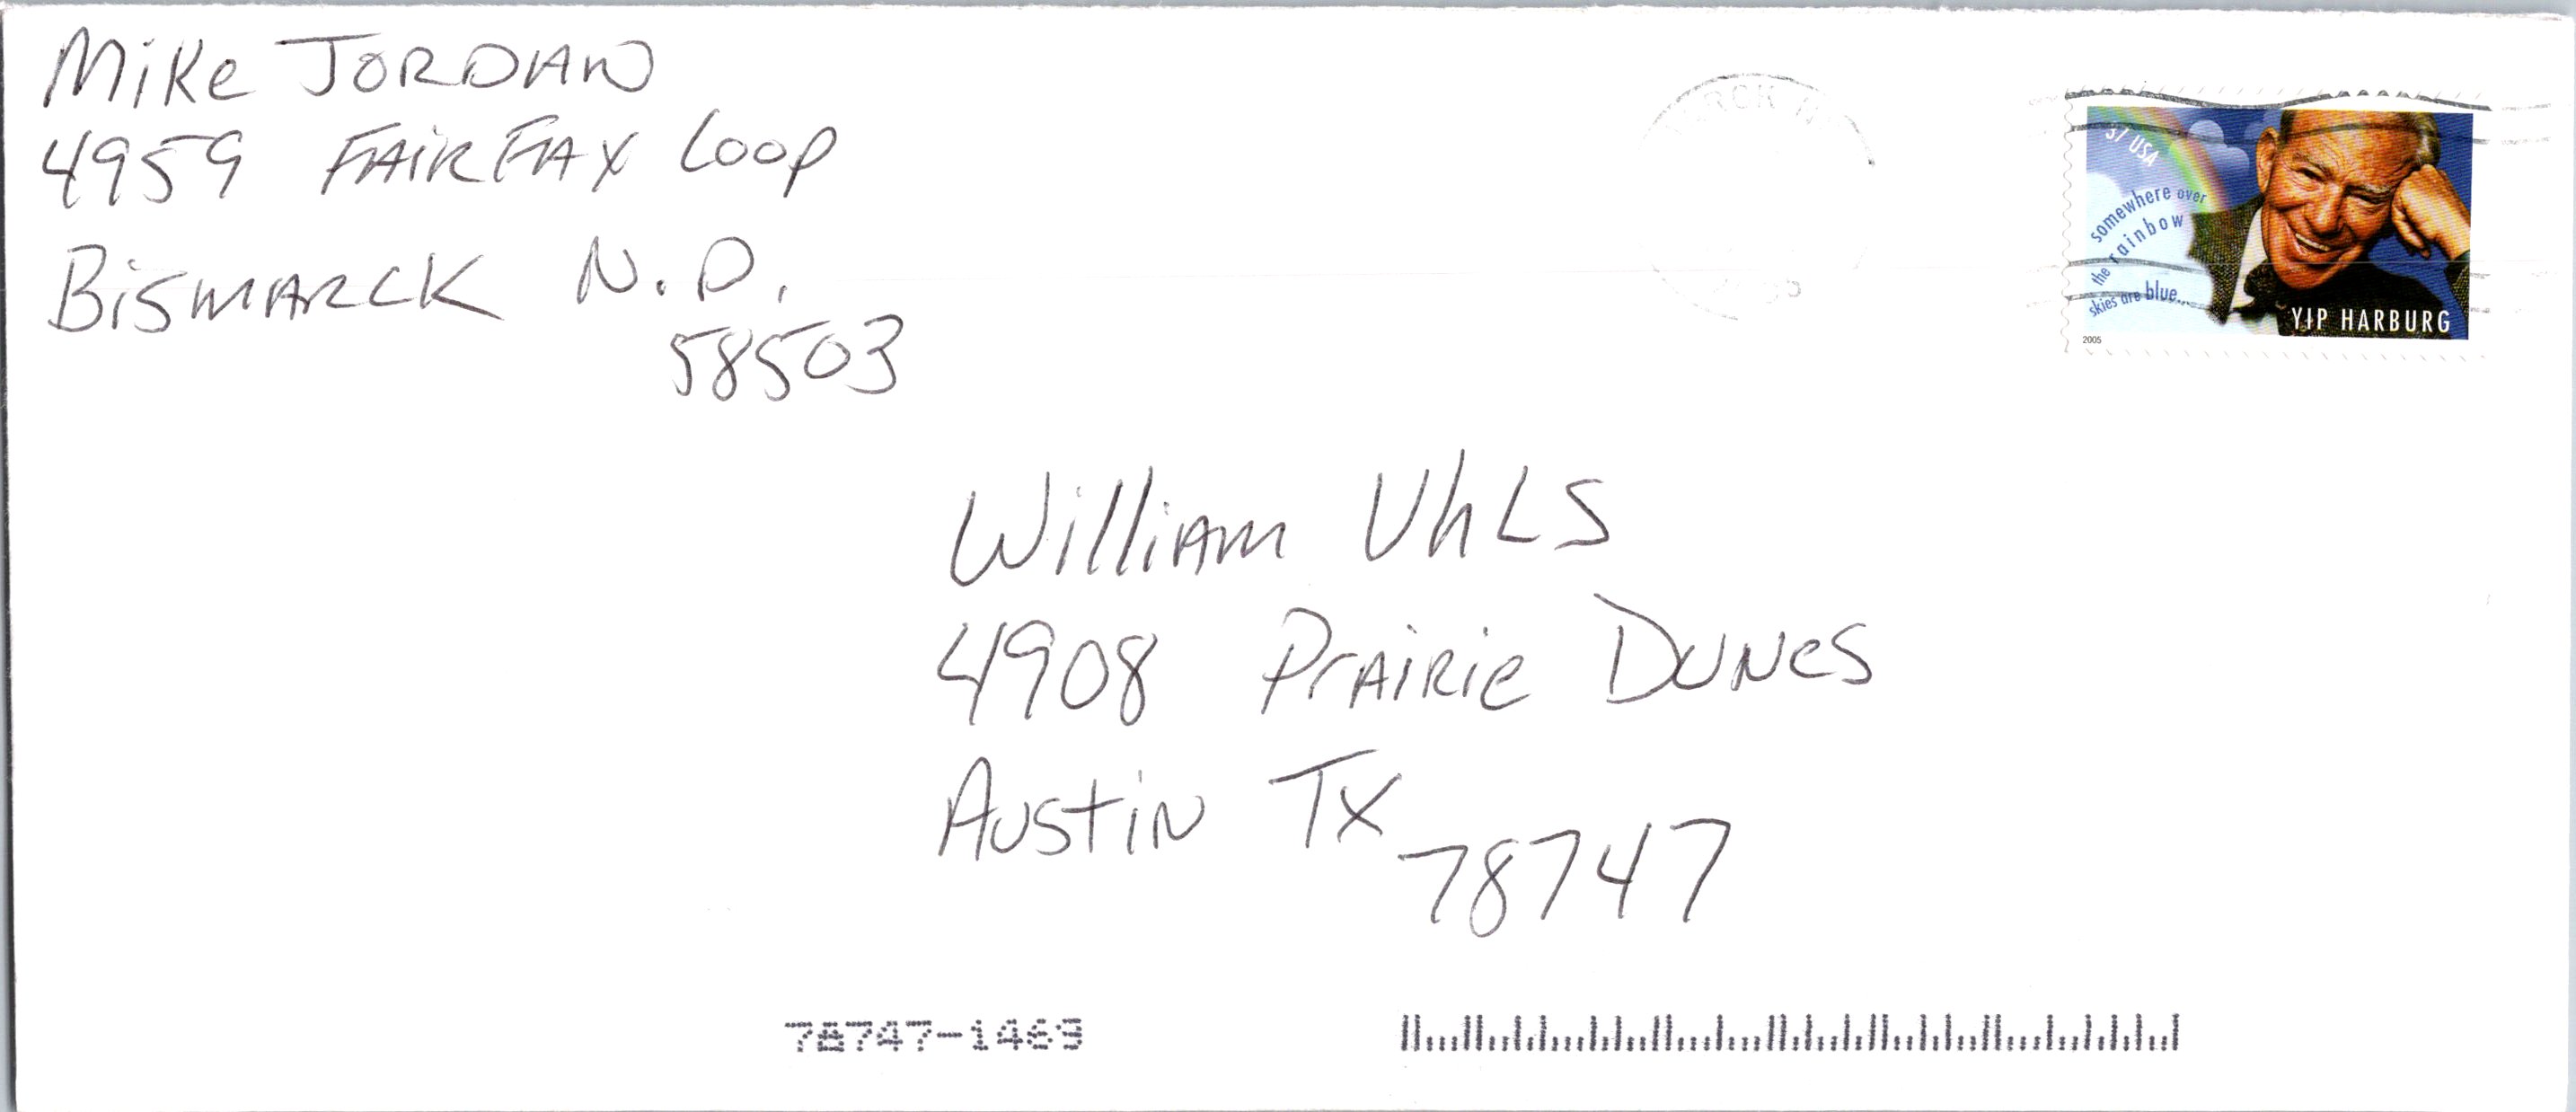 Mike JORDAN
4959 FAIRFAX Loop
BISMARCK N.D.
58503
RCK N
37 USA
somewhere over
the rainbow
skies are blue...
YIP HARBURG
2005
William UhLS
4908 PrAIRie DUNeS
AUStiN TX
78747
78747-1469